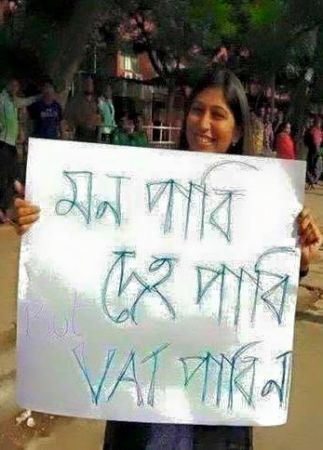 মন পাবি
দেহ পাবি
But
VAT পাবিনা